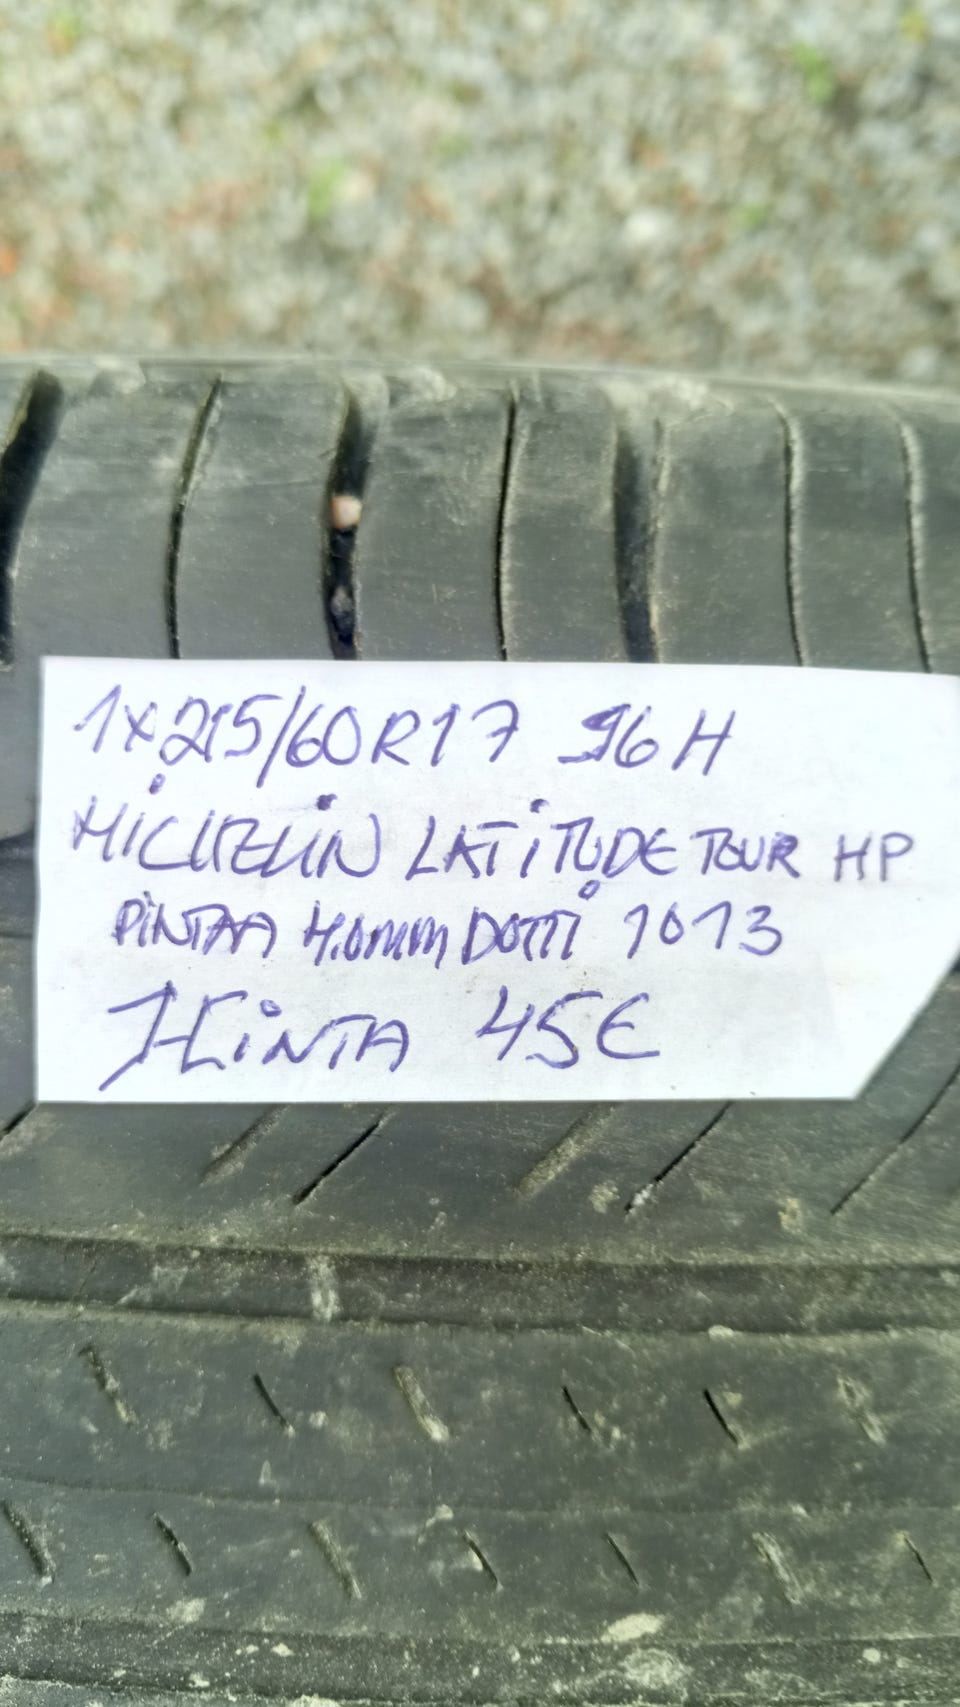 1x215/60R17 96H
MiCHELiN LATiTUDE TOUR HP
PiNTAA 4.0mm DOTTi 1013
HiNTA 45€